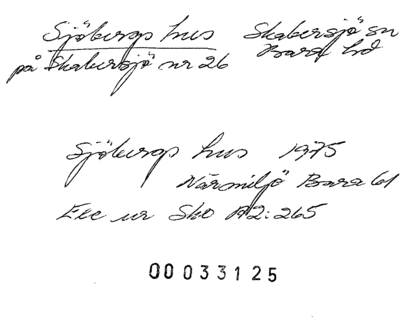 Sjöbergs hus Skabersjö sn
på Skabersjö nr 26 Bara hd
Sjöbergs hus 1975
Närmiljö Bara 61
Exc ur Sko A2:265
00033125